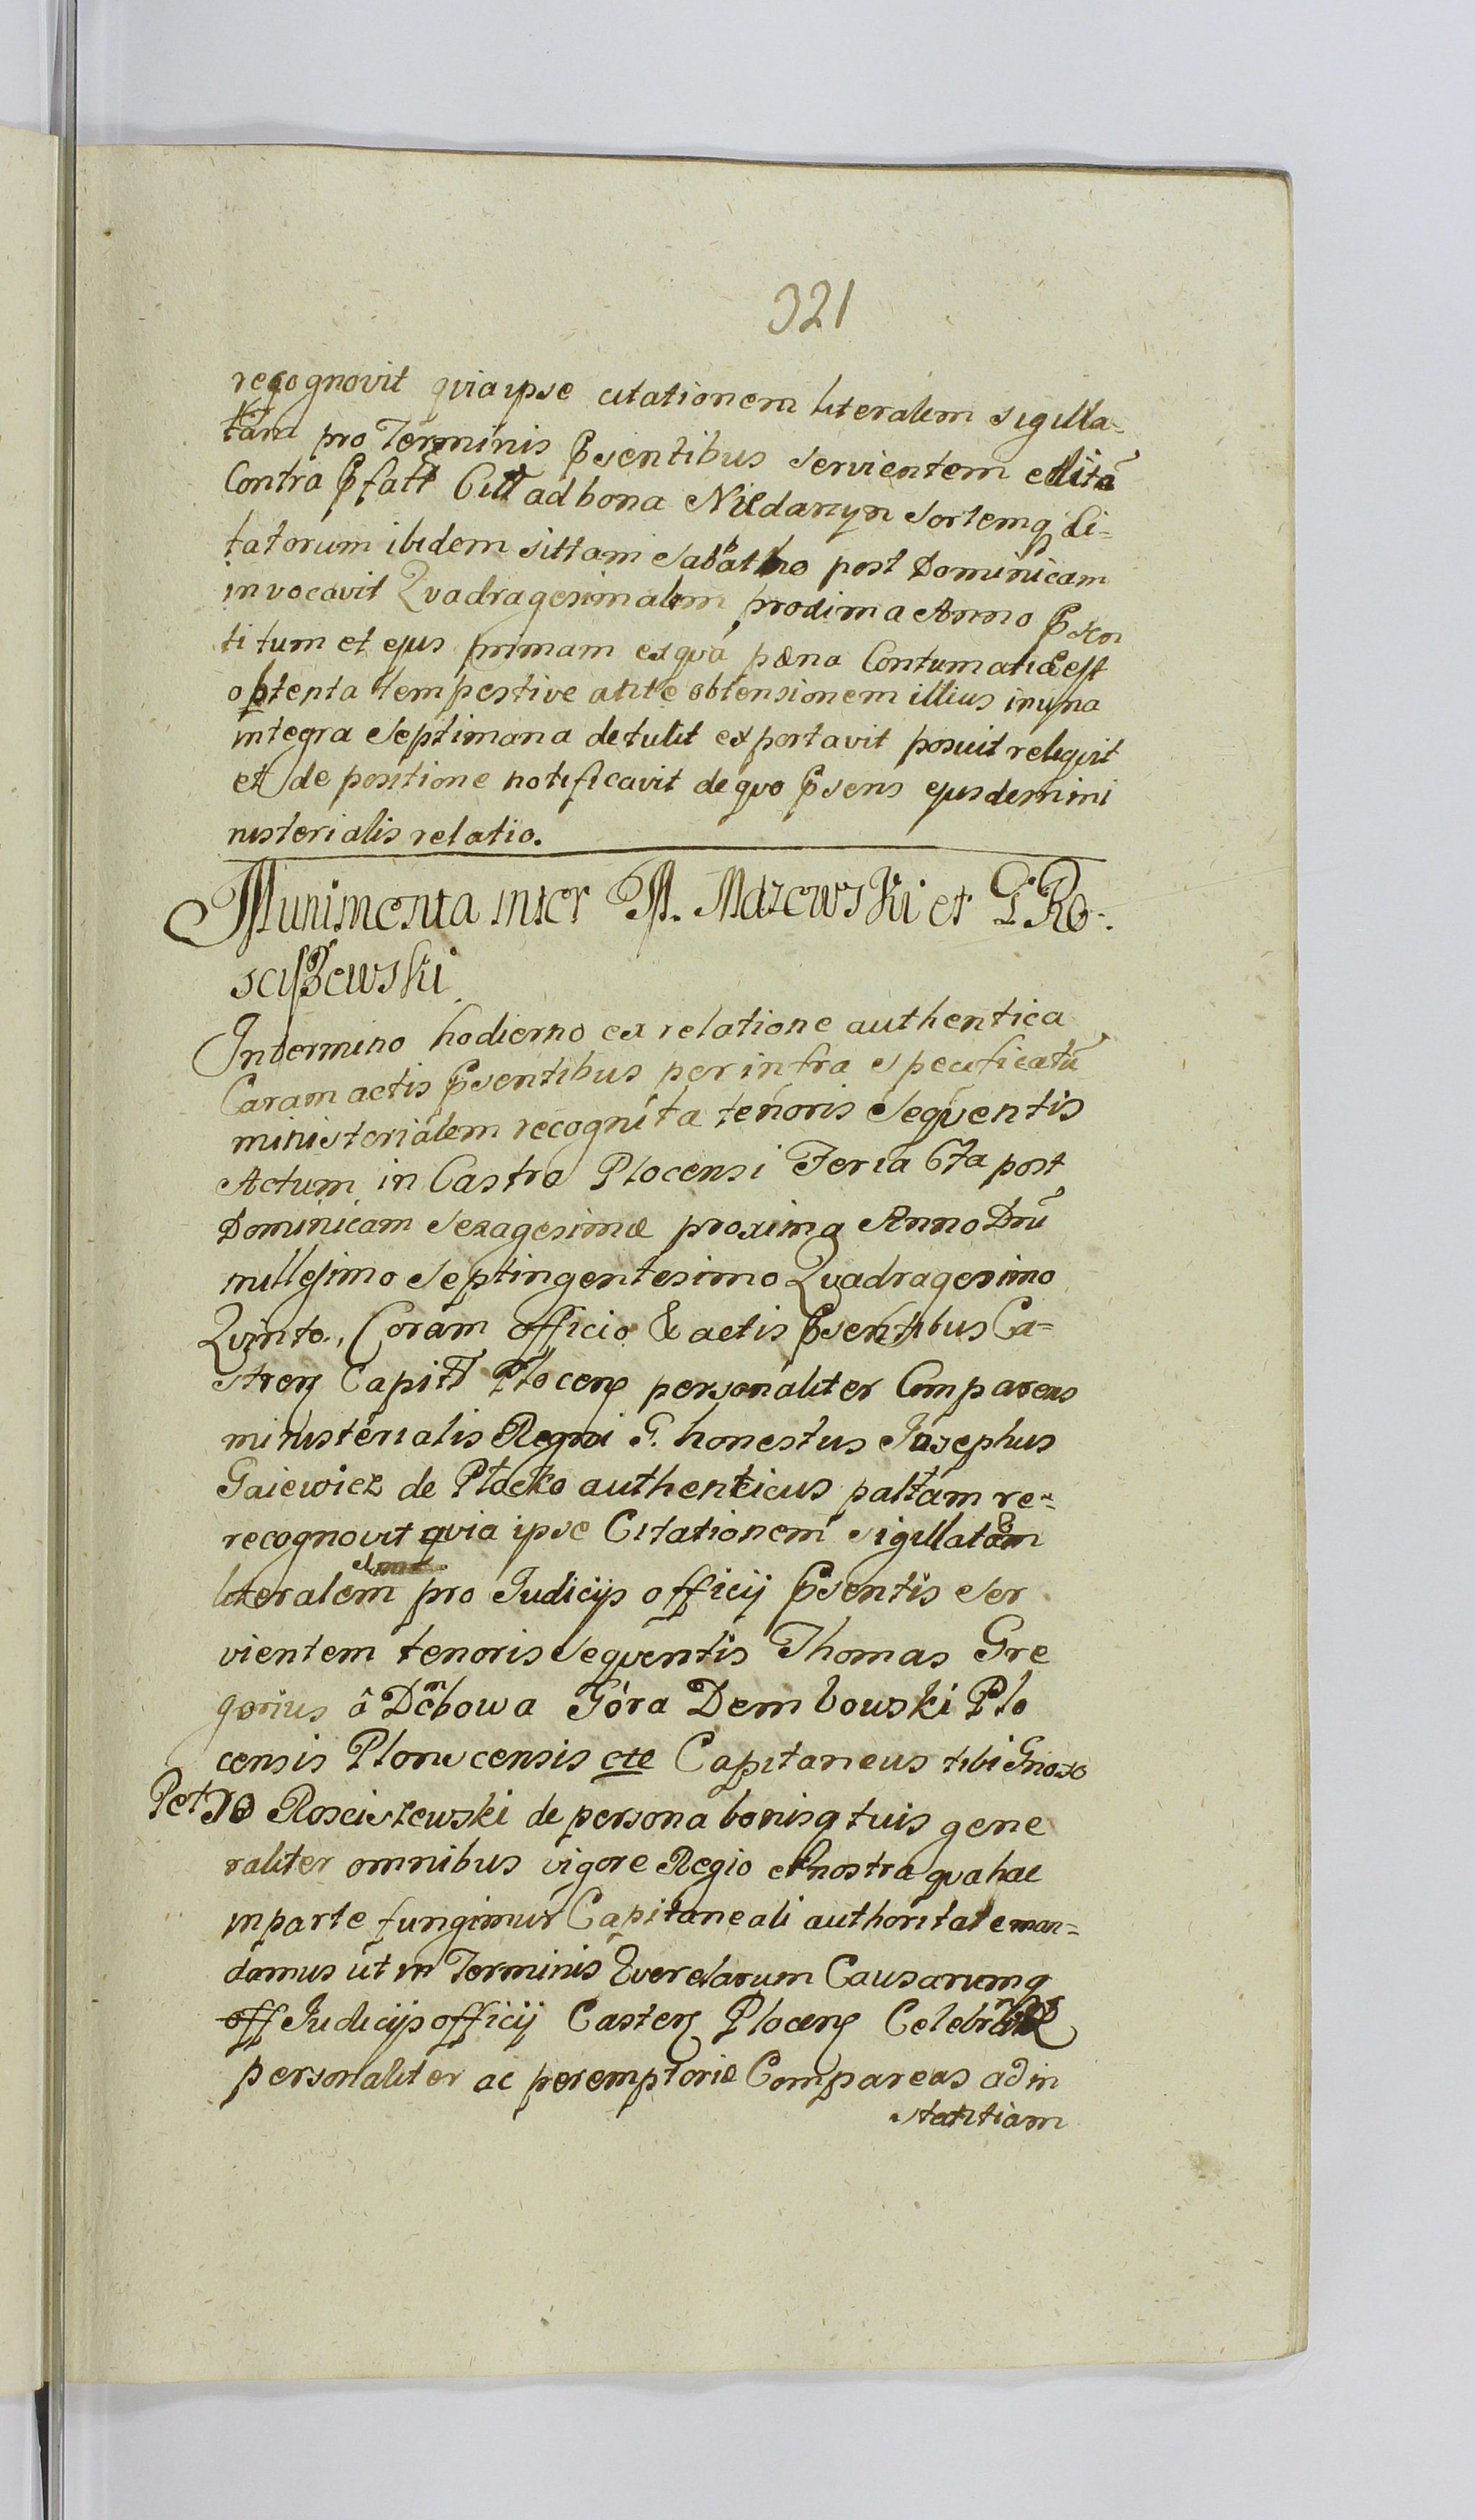 321
recognovit qvia ipse citationem literalem sigilla=
tam pro Terminis Psentibus servientem editã
Contra Pfatt Citt ad bona Nildarzyn sortemq Ci=
tatorum ibidem sittam Sabatho post Dominicam
invocavit Qvadragesimalem proxima Anno
titum et ejus primam ex qva pæna Contumatiæ est
obtenta tempestive ante obtensionem illius in una
integra Septimana detulit exportavit posuit reliqvit
et de positione notificavit de qvo Psens ejusdem mi
nisterialis relatio.
Munimenta inter M. Mazewski et G. Ro=
sciszewski
In termino hodierno ex relatione authentica
Caram actis Psentibus per infra specificatũ
ministerialem recognita tenoris Seqventis
Actum in Castro Plocensi Feria 6ta post
Dominicam Sexagesimæ proxima Anno Dnĩ
millesimo Septingentesimo Qvadragesimo
Qvinto., Coram officio & actis Psentibus Ca=
stren Capitl Plocen personaliter Comparens
ministerialis Regni G. honestus Josephus
Gaiewicz de Płocko authenticus paltam re=
recognovit qvia ipse Citationem sigillatam
literalem pro Judicijs officij Psentis Ser
vientem tenoris Seqventis Thomas Gre
gorius â Dębowa Góra Dembowski Plo
censis Plonscensis etc Capitaneus tibi Gnoso
Petro Rosciszewski de persona bonisq tuis gene
raliter omnibus vigore Regio et nostra qva hac
in parte fungimur Capitaneali authoritate man=
damus ut in Terminis Qverelarum Causarumq
off Judicijs officij Castren Plocen Celebran
personaliter ac peremptorie Compareas ad in
stantiam